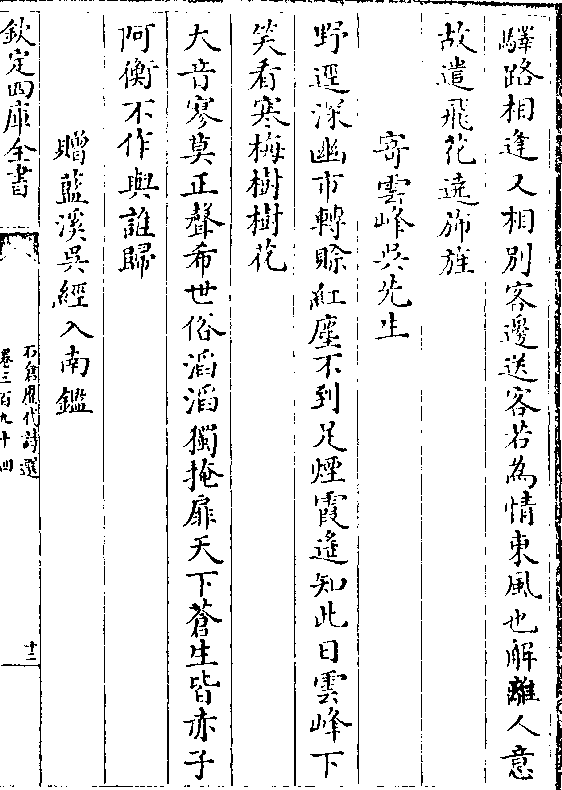 驛路相逢又相別客邊送客若為情東風也解離人意
故遣飛花遶斾旌
寄雲峰吳先生
野逕深幽市轉賒紅塵不到足煙霞遙知此日雲峰下
笑看寒梅樹樹花
大音寥莫正聲希世俗滔滔獨掩扉天下蒼生皆赤子
阿衡不作與誰歸
贈藍溪吳經入南鑑
欽定四庫全書
石倉歷代詩選
卷三百九十四
十三